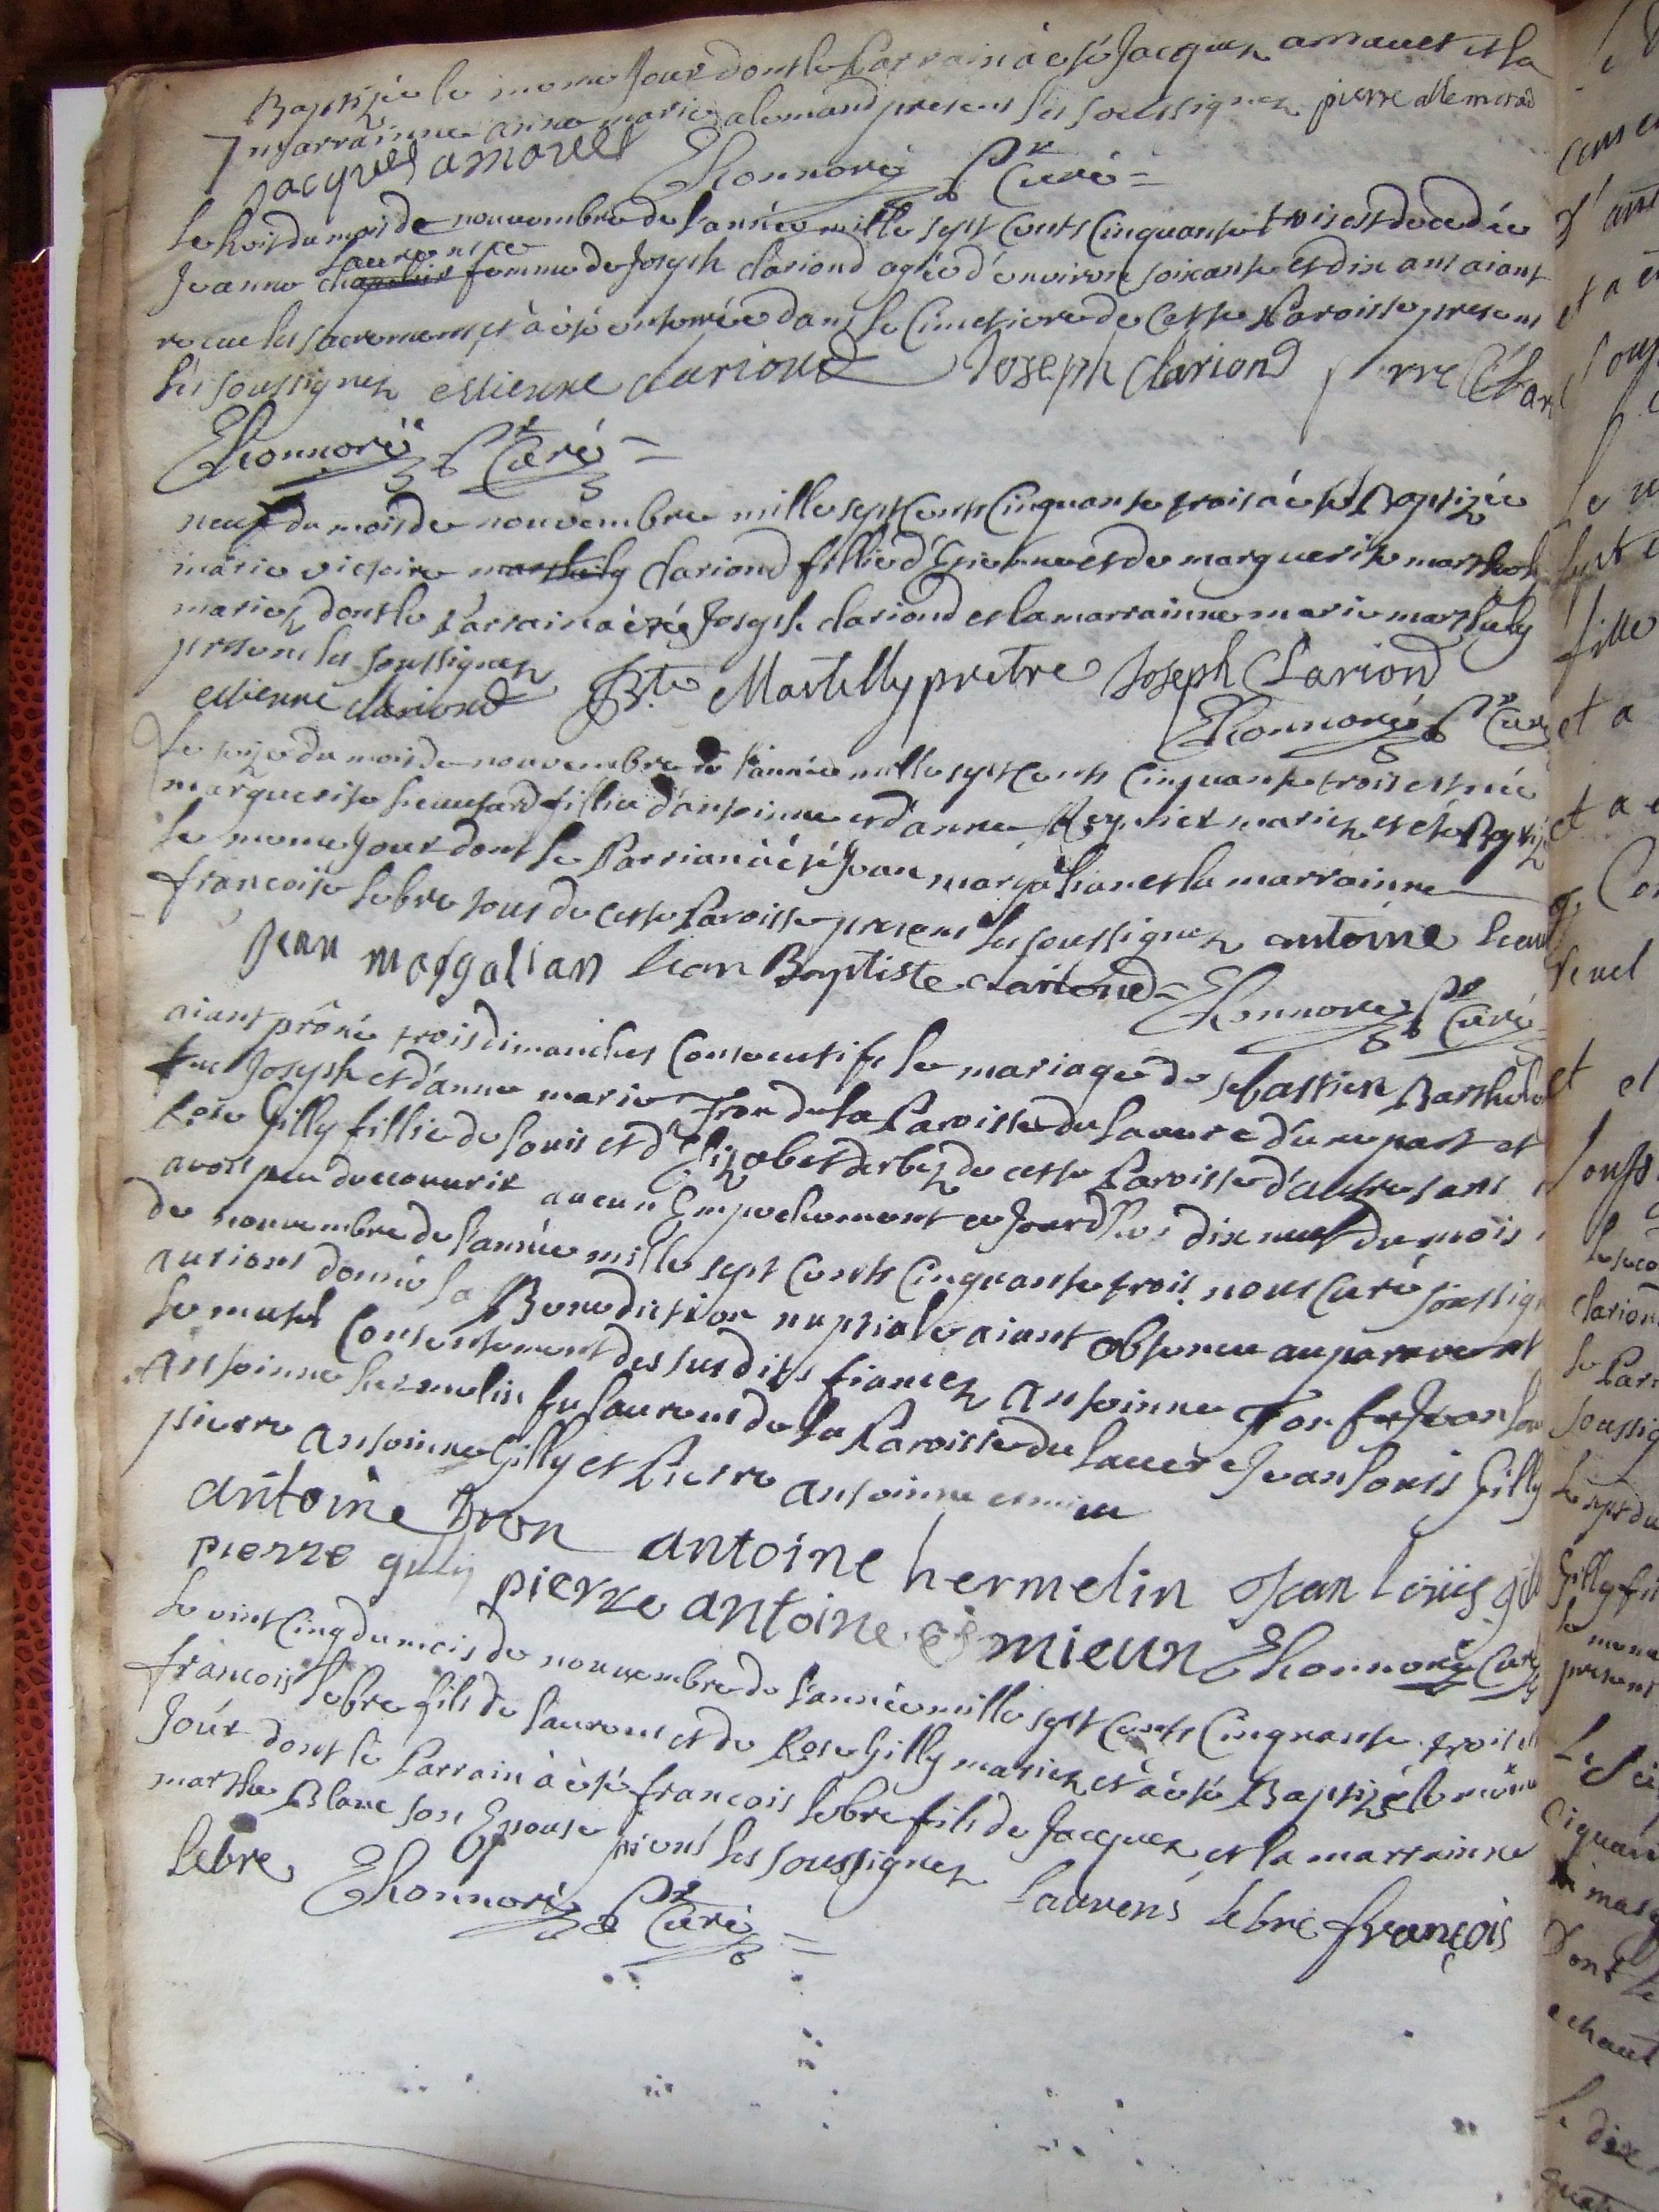 Baptizée le meme Jour dont le Parrain à été Jacques arnauet et la
marrainne anne marie alemand presens les soussignez pierre allemand
jacques arnaues EHonnoré Ptr Curé =
Le huit du mois de nouvembre de l'année mille sept cents Cinquante trois est decedée
laurense
Jeanne femme de Joseph Clariond agée d'environ soixante et dix ans aiant
receu les sacremens et à été enterrée dans le Cimetiere de Cette Paroisse presens
les soussignez estienne clarioud Joseph Clariond pierre Clar
EHonnoré Ptr Curé =
neuf du mois de nouvembre mille sept cents Cinquante trois à été Baptizée
marie victoire marthely Clariond fillie d'Etienne et de marguerite marthely
mariez dont le Parrain à été Joseph clariond et la marrainne marie marthely
presens les soussignez
estienne clariond Bte Martelly pretre Joseph Clariond
EHonnoré Ptr Curé
Le seize du mois de nouvembre de l'année mille sept cents Cinquante trois est née
marguerite lieautard fillie d'antoinne et d'anne Reynier mariez et été Baptiz
le meme Jour dont le Parrian à été Jean margalian et la marrainne
francoise lebre tous de cette Paroisse presens les soussignez antoine lieau
Jean margalian Jean Baptiste clariond = EHonnoré Ptr Curé
aiant prôné trois dimanches Consecutifs le mariage de sebastien Barthele
feu Joseph et d'anne marie Tron de la Paroisse du lauere d'une part et
Rose Gilly fillie de louis et d'Elizabet derbez de cette Paroisse d'autre sans
avoir peu decouurir aucun Empechement ce Jourdhui dix neuf du mois
de nouvembre de l'année mille sept cents Cinquante trois nous Curé soussig
aurions donné la Benediction nuptiale aiant obtenu auparavent
le mutel Consentement des susdits fiancez antoinne Tron fu Jean
antoinne hermelin fu laurens de la Paroisse du lauere Jean louis Gilly
pierre antoinne Gilly et Pierre antoinne esmieu
antoine tron antoine hermelin Jean loüis gil
pierre gilly pierre antoine esmieux EHonnoré Curé
Le vint Cinq du mois de nouvembre de l'année mille sept cents Cinquante trois
francois lebre fils de laurens et de Rose Gilly mariez et à été Baptizé le même
Joúr dont le Parrain à été francois lebre fils de Jacques et la marrainne
marthe Blanc son Epouse presens les soussignez laurens lebre françois
lebre EHonnoré Ptr Curé =